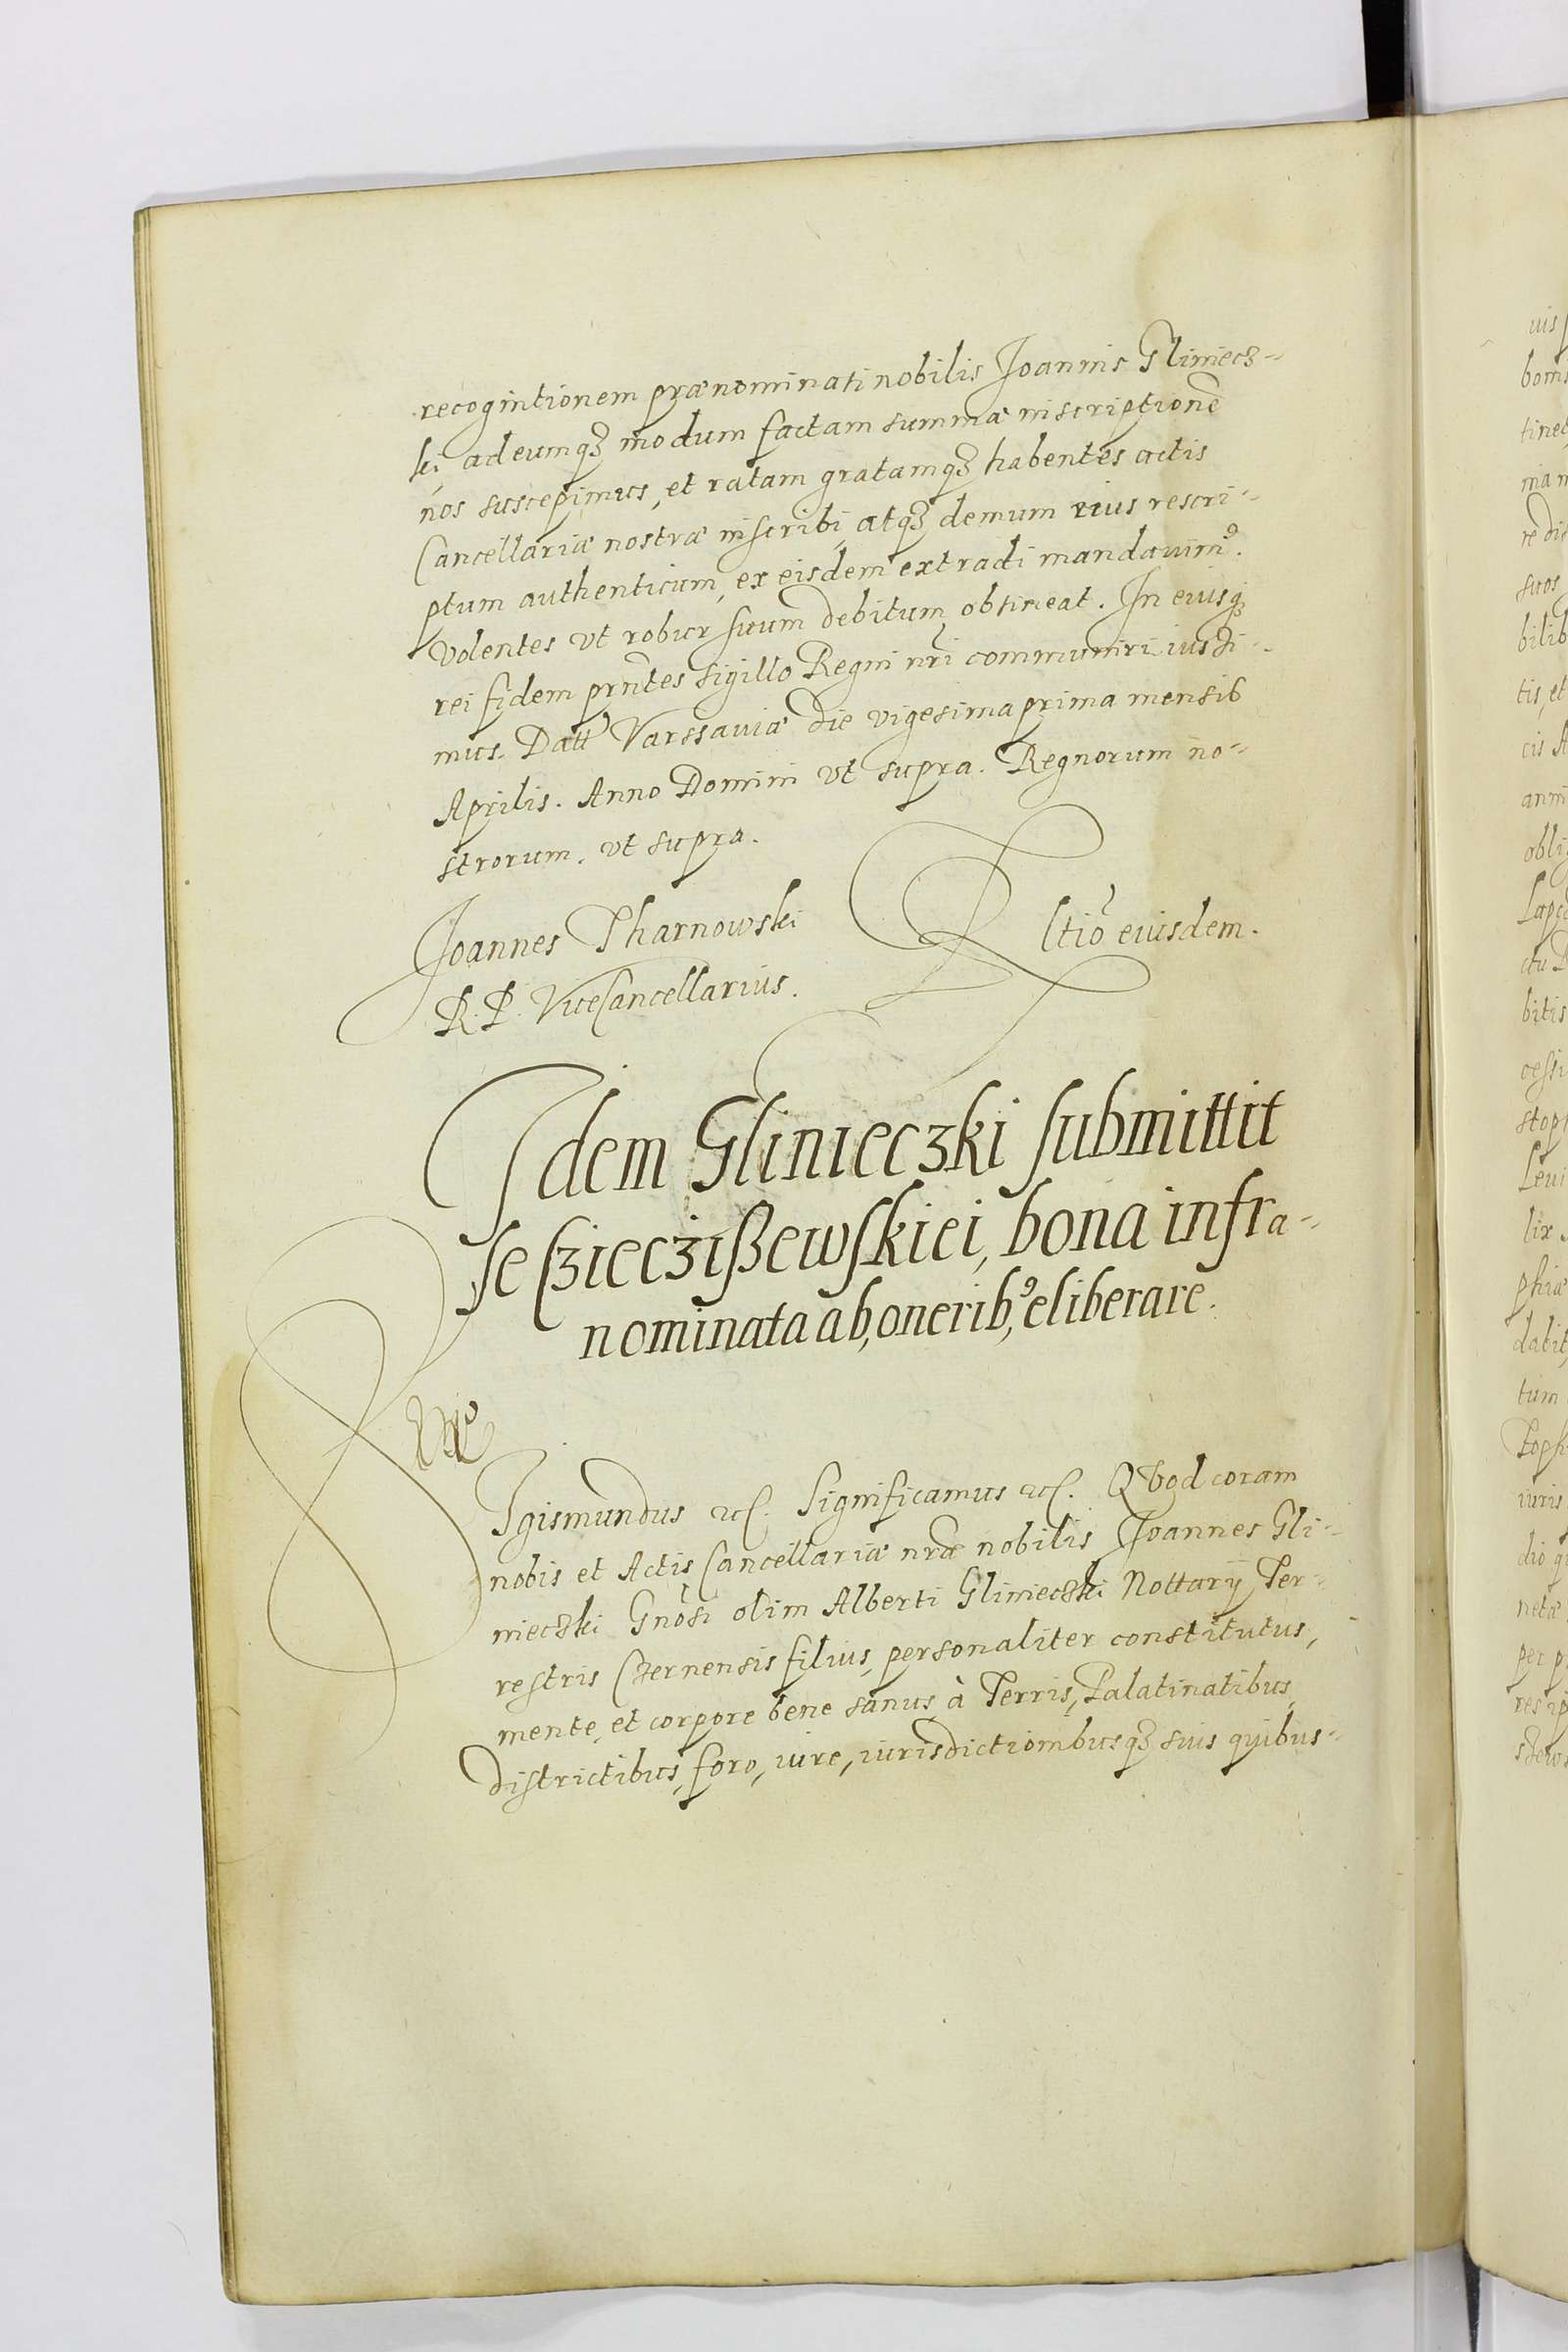 recognitionem prænominati nobilis Joannis Gliniecz-
ki ad eumqȝ modum factam summæ inscriptionē
nos suscepimus, et ratam gratamqȝ habentes actis
Cancellariæ nostræ inscribi, atqȝ demum eius rescri-
ptum authenticum, ex eisdem extradi mandavimꝰ.
Volentes vt robur suum debitum obtineat. In euisqȝ
rei fidem prñtes sigillo Regni nr̃i communiri iussi-
mus. Datt Varssaviæ die vigesima prima mensis
Aprilis. Anno Domini vt supra. Regnorum no-
strorum. vt supra.
Joannes Tharnowski
R. P. ViceCancellarius.
Rltiõ eiusdem.
Idem Glinieczki submittit
se Czieczißewskiei, bona infra-
nominata ab, oneribꝰ, eliberare.
Igismundus etc. Significamus etc. QVod coram
nobis et Actis Cancellariæ nræ nobilis Joannes Gli-
nieczki Gnõsi olim Alberti Glinieczki Nottarÿ Ter-
restris Czernensis filius, personaliter constitutus,
mente, et corpore bene sanus, à Terris, Palatinatibus,
districtibus, foro, iure, iurisdictionibusqȝ suis quibus-